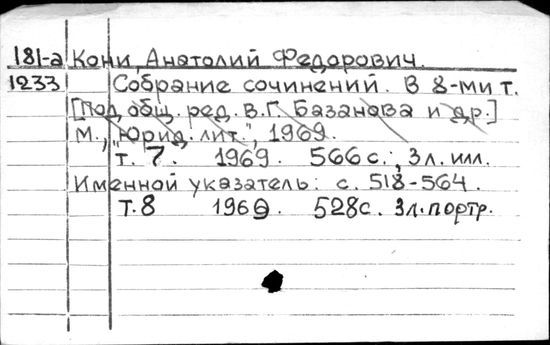 181-а Кони, Анатолий Федорович.
1233 Собрание сочинений. В 8-ми т.
[Под общ. ред. В.Г. Базанова и др.]
М., "Юрид. лит.", 1969.
т. 7. 1969. 566 с., 3 л. илл.
Именной указатель: с. 518-564.
Т. 8 1969. 528 с. 3л. портр.